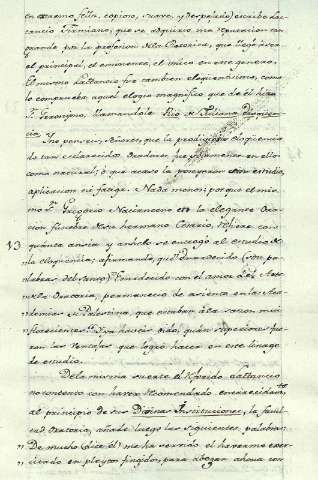 en extremo feliz, copioso, suave, y despejado) escribe Lac-
tancio Firmiano, que se adquirió una reputacion tan
grande por la profesion de la Retorica, que llegó à ser
el principal, el eminente, el unico en este genero.
El mismo Lactancio fue tambien eloquentisimo, como
lo comprueba aquel elogio magnifico que de él hizo
S. Geronymo, llamandole Rio de Tuliana
y no penseis, Señores, que la prodigiosa eloquencia
de tan esclarecidos Oradores fue
natural; ò que acaso la poseyeron sin estudio,
aplicacion ni fatiga. Nada menos; porque el mis-
mo S. Gregorio Nacianceno en la elegante Ora-
cion funebre de su hermano Cesario, refiere con
quanta ansia y anhelo se entregó al estudio de
la eloquencia; afirmando, que Enardecido (son pa-
labras del Santo) Enardecido con el amor del Arte
de la Oratoria, permanecí de asiento en las Aca-
demias de Palestina, que estaban à la sazon mui
florecientes. quán superiores fue-
ron las ventajas que logró hacer en este linage
de estudio.
De la misma suerte el referido Lactancio
no contento con haver recomendado encarecidam.te
al principio de sus Divinas Instituciones, la facul-
tad Oratoria, añade luego las siguientes palabras:
" De mucho (dice él) me ha servido el haverme exer-
" citado en pleytos fingidos, para abogar ahora con
13